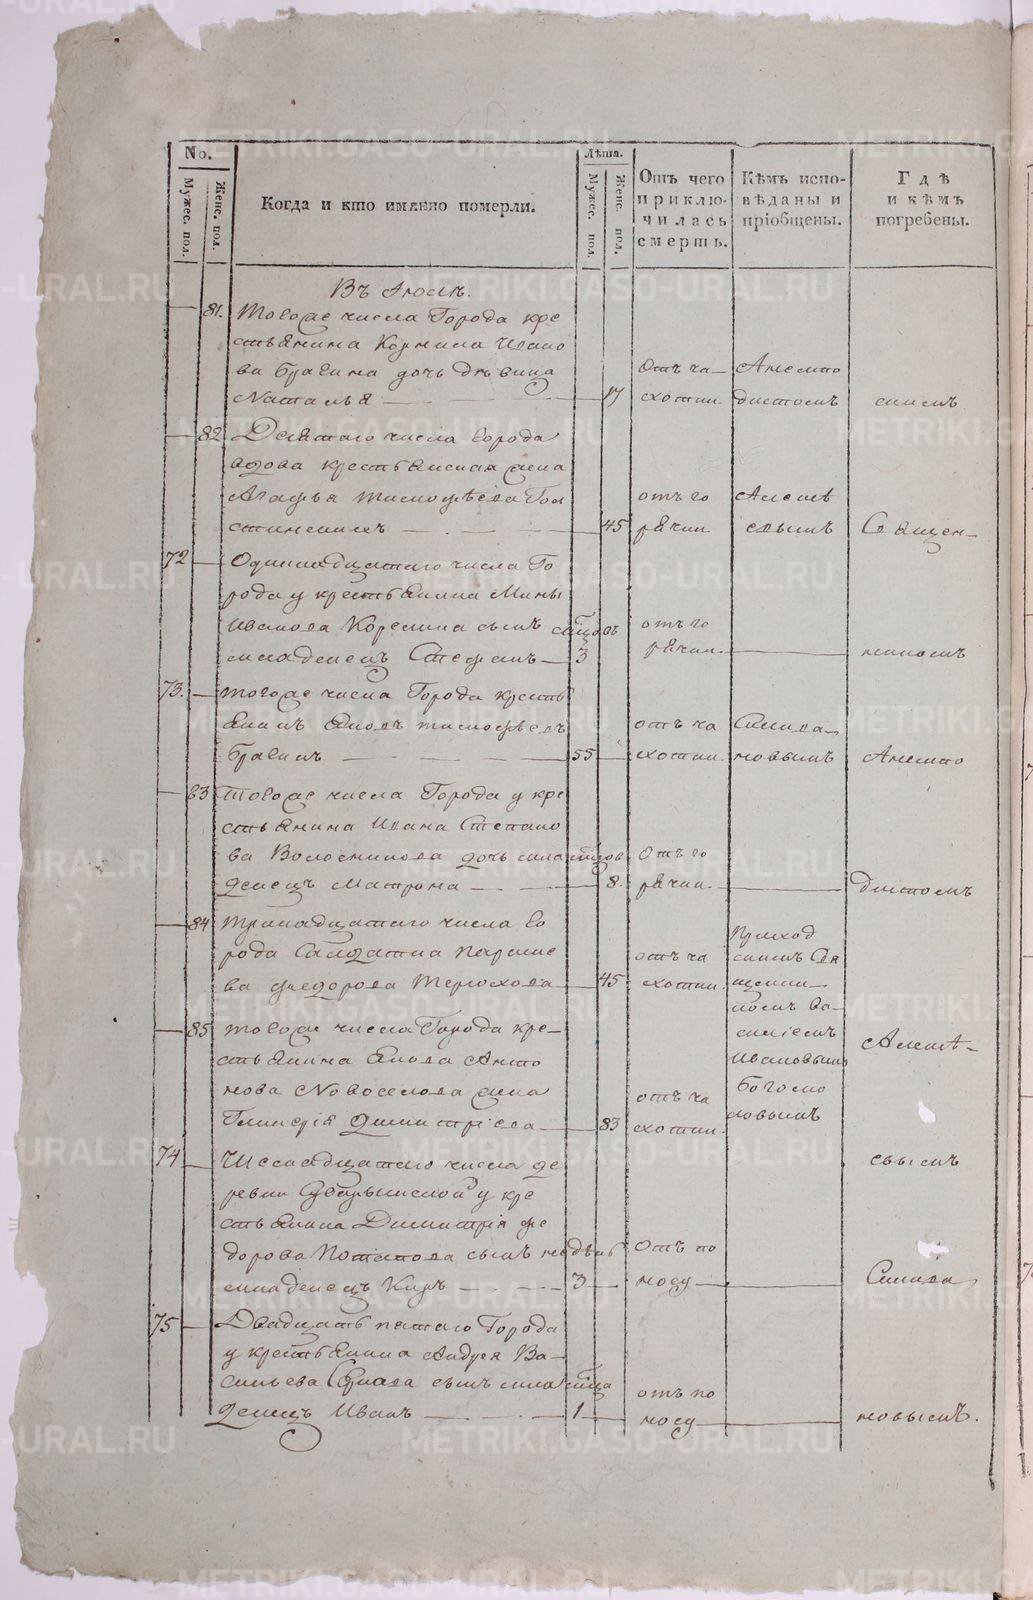 No.
Мужес. пол.
Женс. пол.
Когда и кто имянно померли.
Лѣта.
Мужес. пол.
Женс. пол.
Отъ чего приклю-
чилась
смерть.
Кѣмъ испо-
вѣданы и
пріобщены.
Гдѣ
и кѣмъ
погребены.
Въ Іюлѣ.
81. Тогоже числа Города кре
стьянина Корнила Ивано
ва Брагина дочь дѣвица
Наталья 17
отъ ча-
хотки
Анемпо
дистомъ
82 Десятаго числа города
вдова крестьянская жена
Агафья Тимофѣева
45
отъ го
рячки
Алексѣ
евымъ
Священ-
72 Одиннадцатаго числа Го
рода у крестьянина Мины
Иванова Корелина сынъ
младенецъ Стефанъ 3
отъ го
рячки
никомъ
73. тогоже числа Города кресть
янинъ Яковъ Тимофѣевъ
Брагинъ 55
отъ ча
хотки
Силива-
новымъ
Анемпо
83 Тогоже числа Города у кре
стьянина Ивана Степано
ва Волосникова дочь мла
денецъ Матрона 8.
отъ го
рячки
дистомъ
84 Тринадцатаго числа го
рода Салдатка
ва Федорова Терюхова 45
отъ ча
хотки
Приход
скимъ Свя
щенни
комъ Ва-
силіемъ
Ивановымъ
Богомо
ловымъ
85 тогоже числа Города кре-
стьянина Якова Анто
нова Новоселова жена
Гликерія Димитріева 83
отъ ча
хотки
Алексѣ-
евымъ
74 Шеснадцатаго числа де
ревни у кре
стьянина Димитрія Фе
дорова Потапова сынъ недѣль
младенецъ Киръ 3
отъ по
носу
Силива
75 Двадцать пятаго Города
у крестьянина Андрея Ва-
сильева сынъ мла
денецъ Иванъ 1
отъ по
носу
новымъ.
METRIKI.GASO-URAL.RU